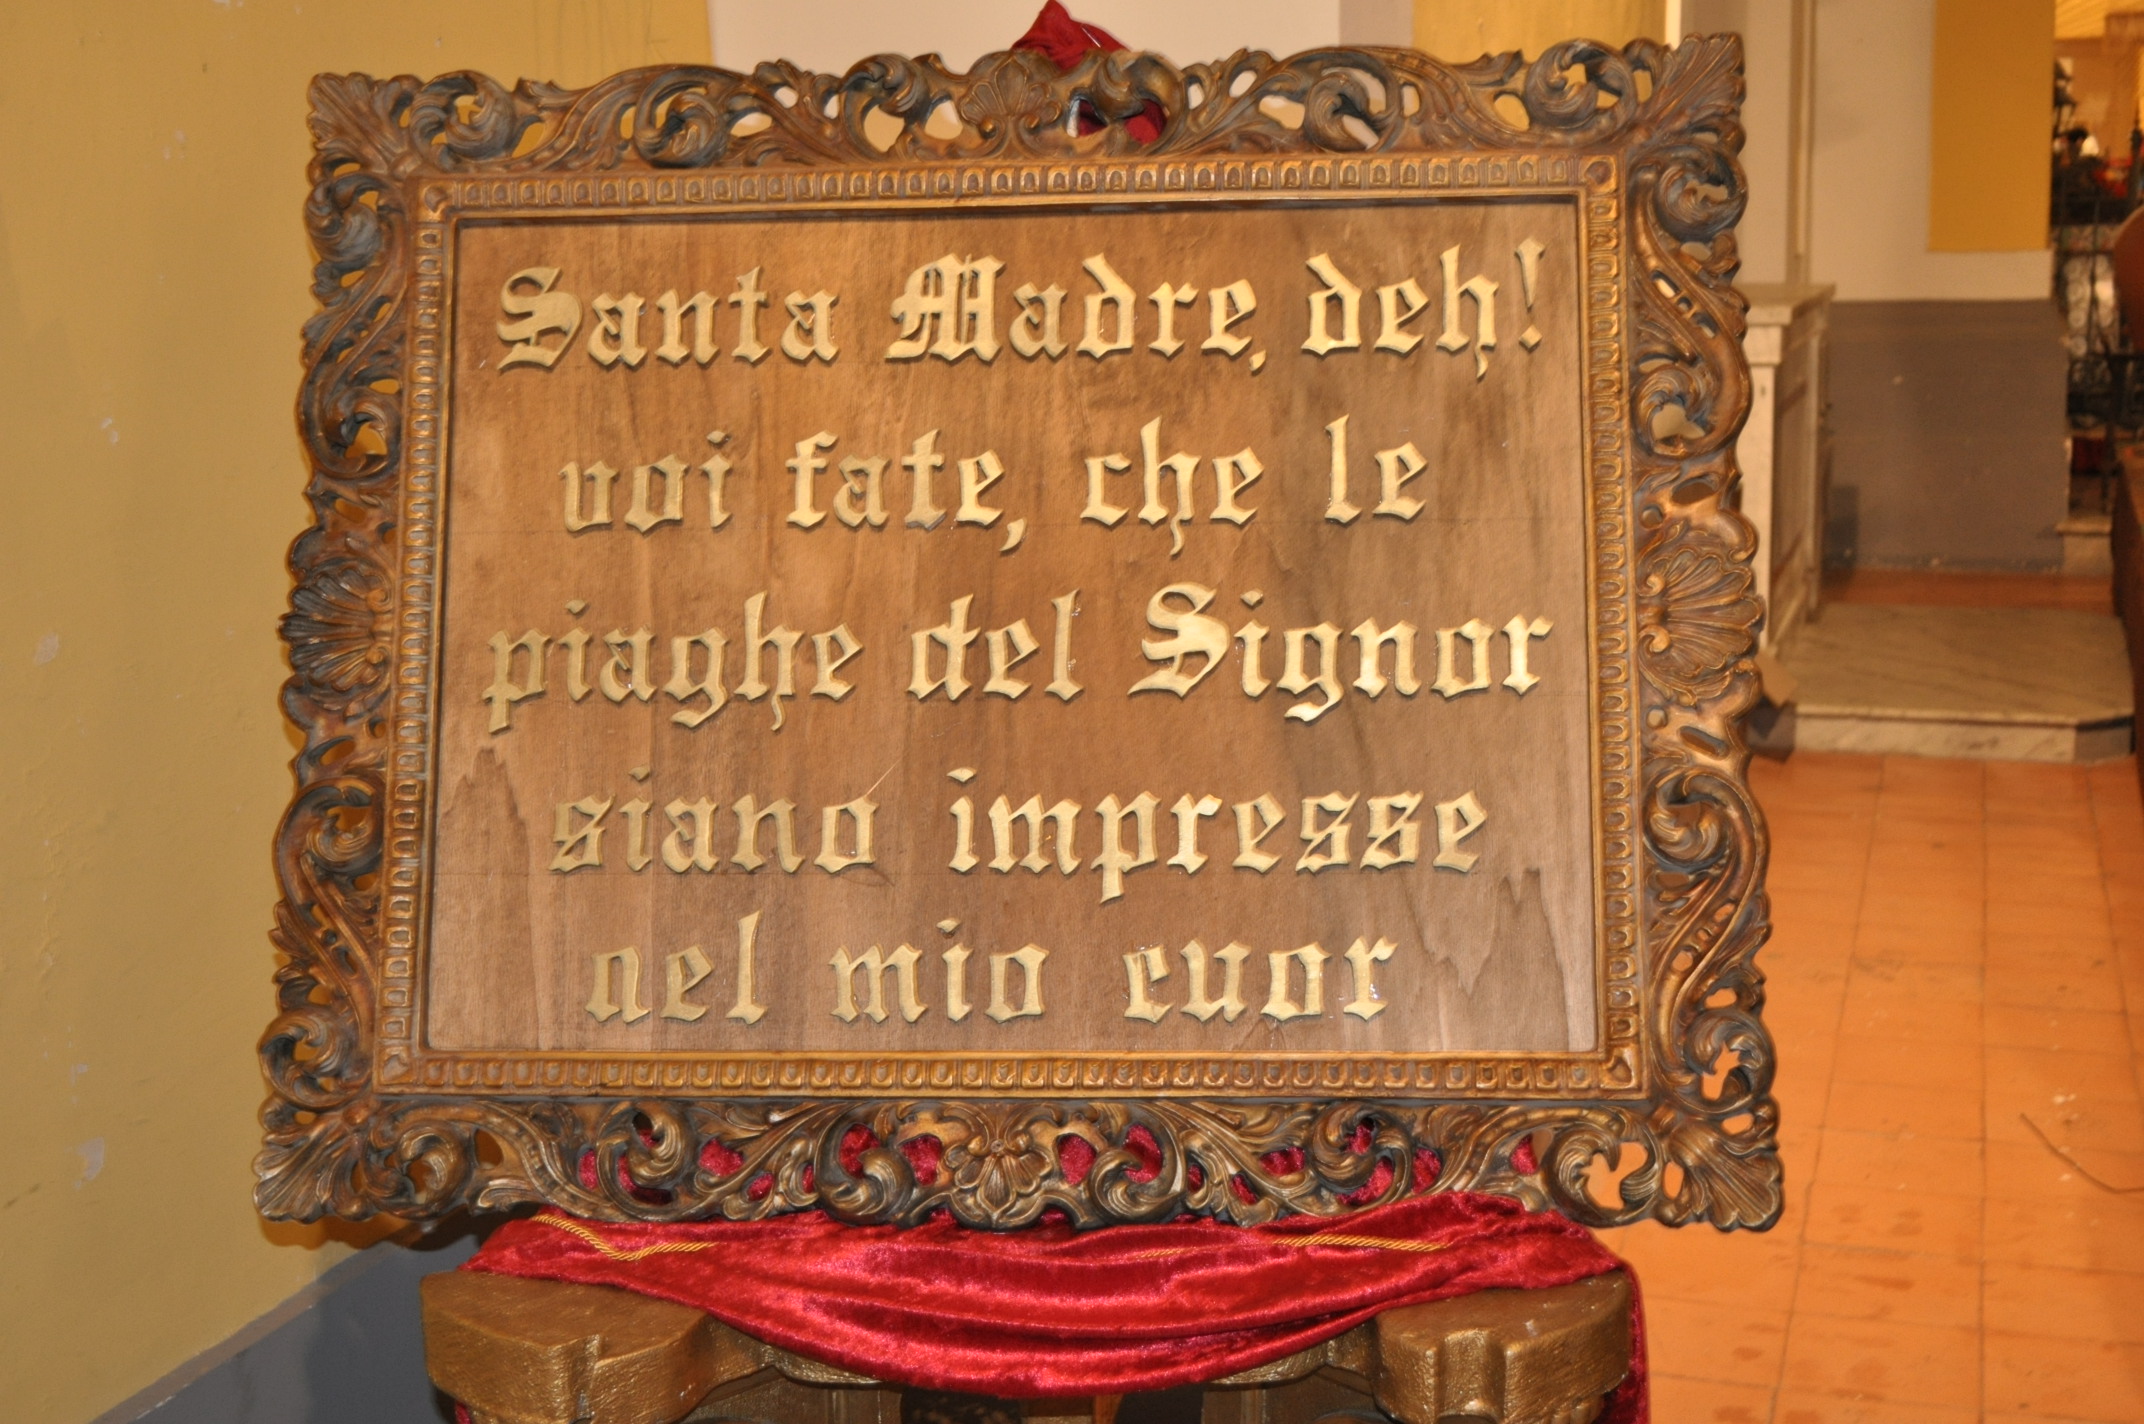 Santa Madre, deh!
voi fate, che le
piaghe del Signor
siano impresse
nel mio cuor